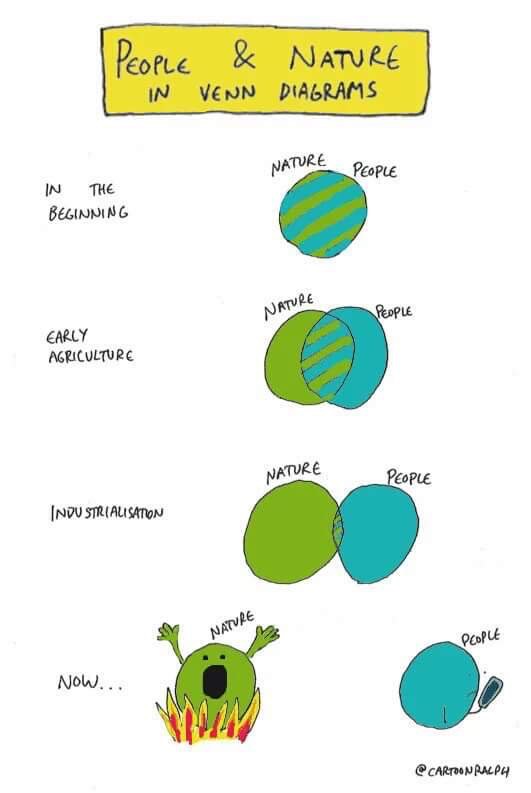 PEOPLE & NATURE
IN VENN DIAGRAMS
IN THE
BEGINNING
NATURE PEOPLE
EARLY
AGRICULTURE
NATURE PEOPLE
INDUSTRIALISATION
NATURE PEOPLE
NOW...
NATURE PEOPLE
@CARTOONRALPH